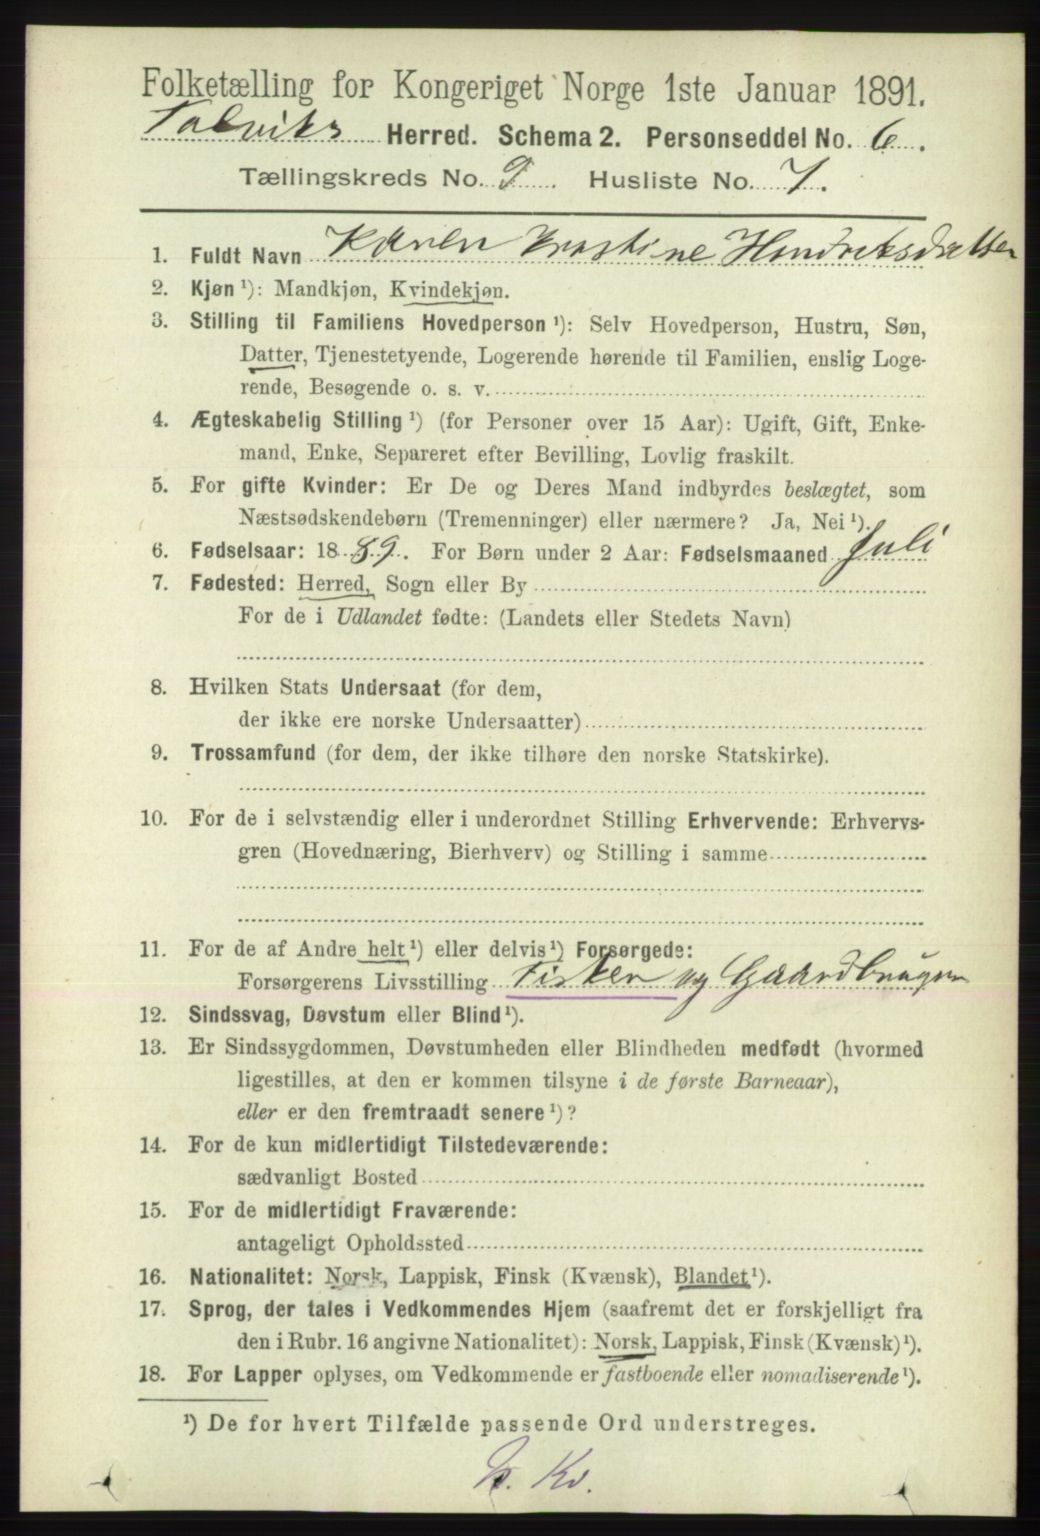 Folketælling for Kongeriget Norge 1ste Januar 1891.
Talviks Herred. Schema 2. Personseddel No. 6.
Tællingskreds No. 9. Husliste No. 7.
1. Fuldt Navn Karen Kristine Hendriksdatter
2. Kjøn ¹): Mandkjøn, Kvindekjøn.
3. Stilling til Familiens Hovedperson ¹): Selv Hovedperson, Hustru, Søn,
Datter, Tjenestetyende, Logerende hørende til Familien, enslig Loge-
rende, Besøgende o. s. v.
4. Ægteskabelig Stilling ¹) (for Personer over 15 Aar): Ugift, Gift, Enke-
mand, Enke, Separeret efter Bevilling, Lovlig fraskilt.
5. For gifte Kvinder: Er De og Deres Mand indbyrdes beslægtet, som
Næstsødskendebørn (Tremenninger) eller nærmere? Ja, Nei ¹).
6. Fødselsaar: 1889. For Børn under 2 Aar: Fødselsmaaned Juli
7. Fødested: Herred, Sogn eller By
For de i Udlandet fødte: (Landets eller Stedets Navn)
8. Hvilken Stats Undersaat (for dem,
der ikke ere norske Undersaatter)
9. Trossamfund (for dem, der ikke tilhøre den norske Statskirke).
10. For de i selvstændig eller i underordnet Stilling Erhvervende: Erhvervs-
gren (Hovednæring, Bierhverv) og Stilling i samme
11. For de af Andre helt ¹) eller delvis ¹) Forsørgede:
Forsørgerens Livsstilling Fisker og Gaardbruger
12. Sindssvag, Døvstum eller Blind ¹).
13. Er Sindssygdommen, Døvstumheden eller Blindheden medfødt (hvormed
ligestilles, at den er kommen tilsyne i de første Barneaar),
eller er den fremtraadt senere ¹)?
14. For de kun midlertidigt Tilstedeværende:
sædvanligt Bosted
15. For de midlertidigt Fraværende:
antageligt Opholdssted
16. Nationalitet: Norsk, Lappisk, Finsk (Kvænsk), Blandet ¹).
17. Sprog, der tales i Vedkommendes Hjem (saafremt det er forskjelligt fra
den i Rubr. 16 angivne Nationalitet): Norsk, Lappisk, Finsk (Kvænsk) ¹).
18. For Lapper oplyses, om Vedkommende er fastboende eller nomadiserende ¹).
¹) De for hvert Tilfælde passende Ord understreges.
Kv.